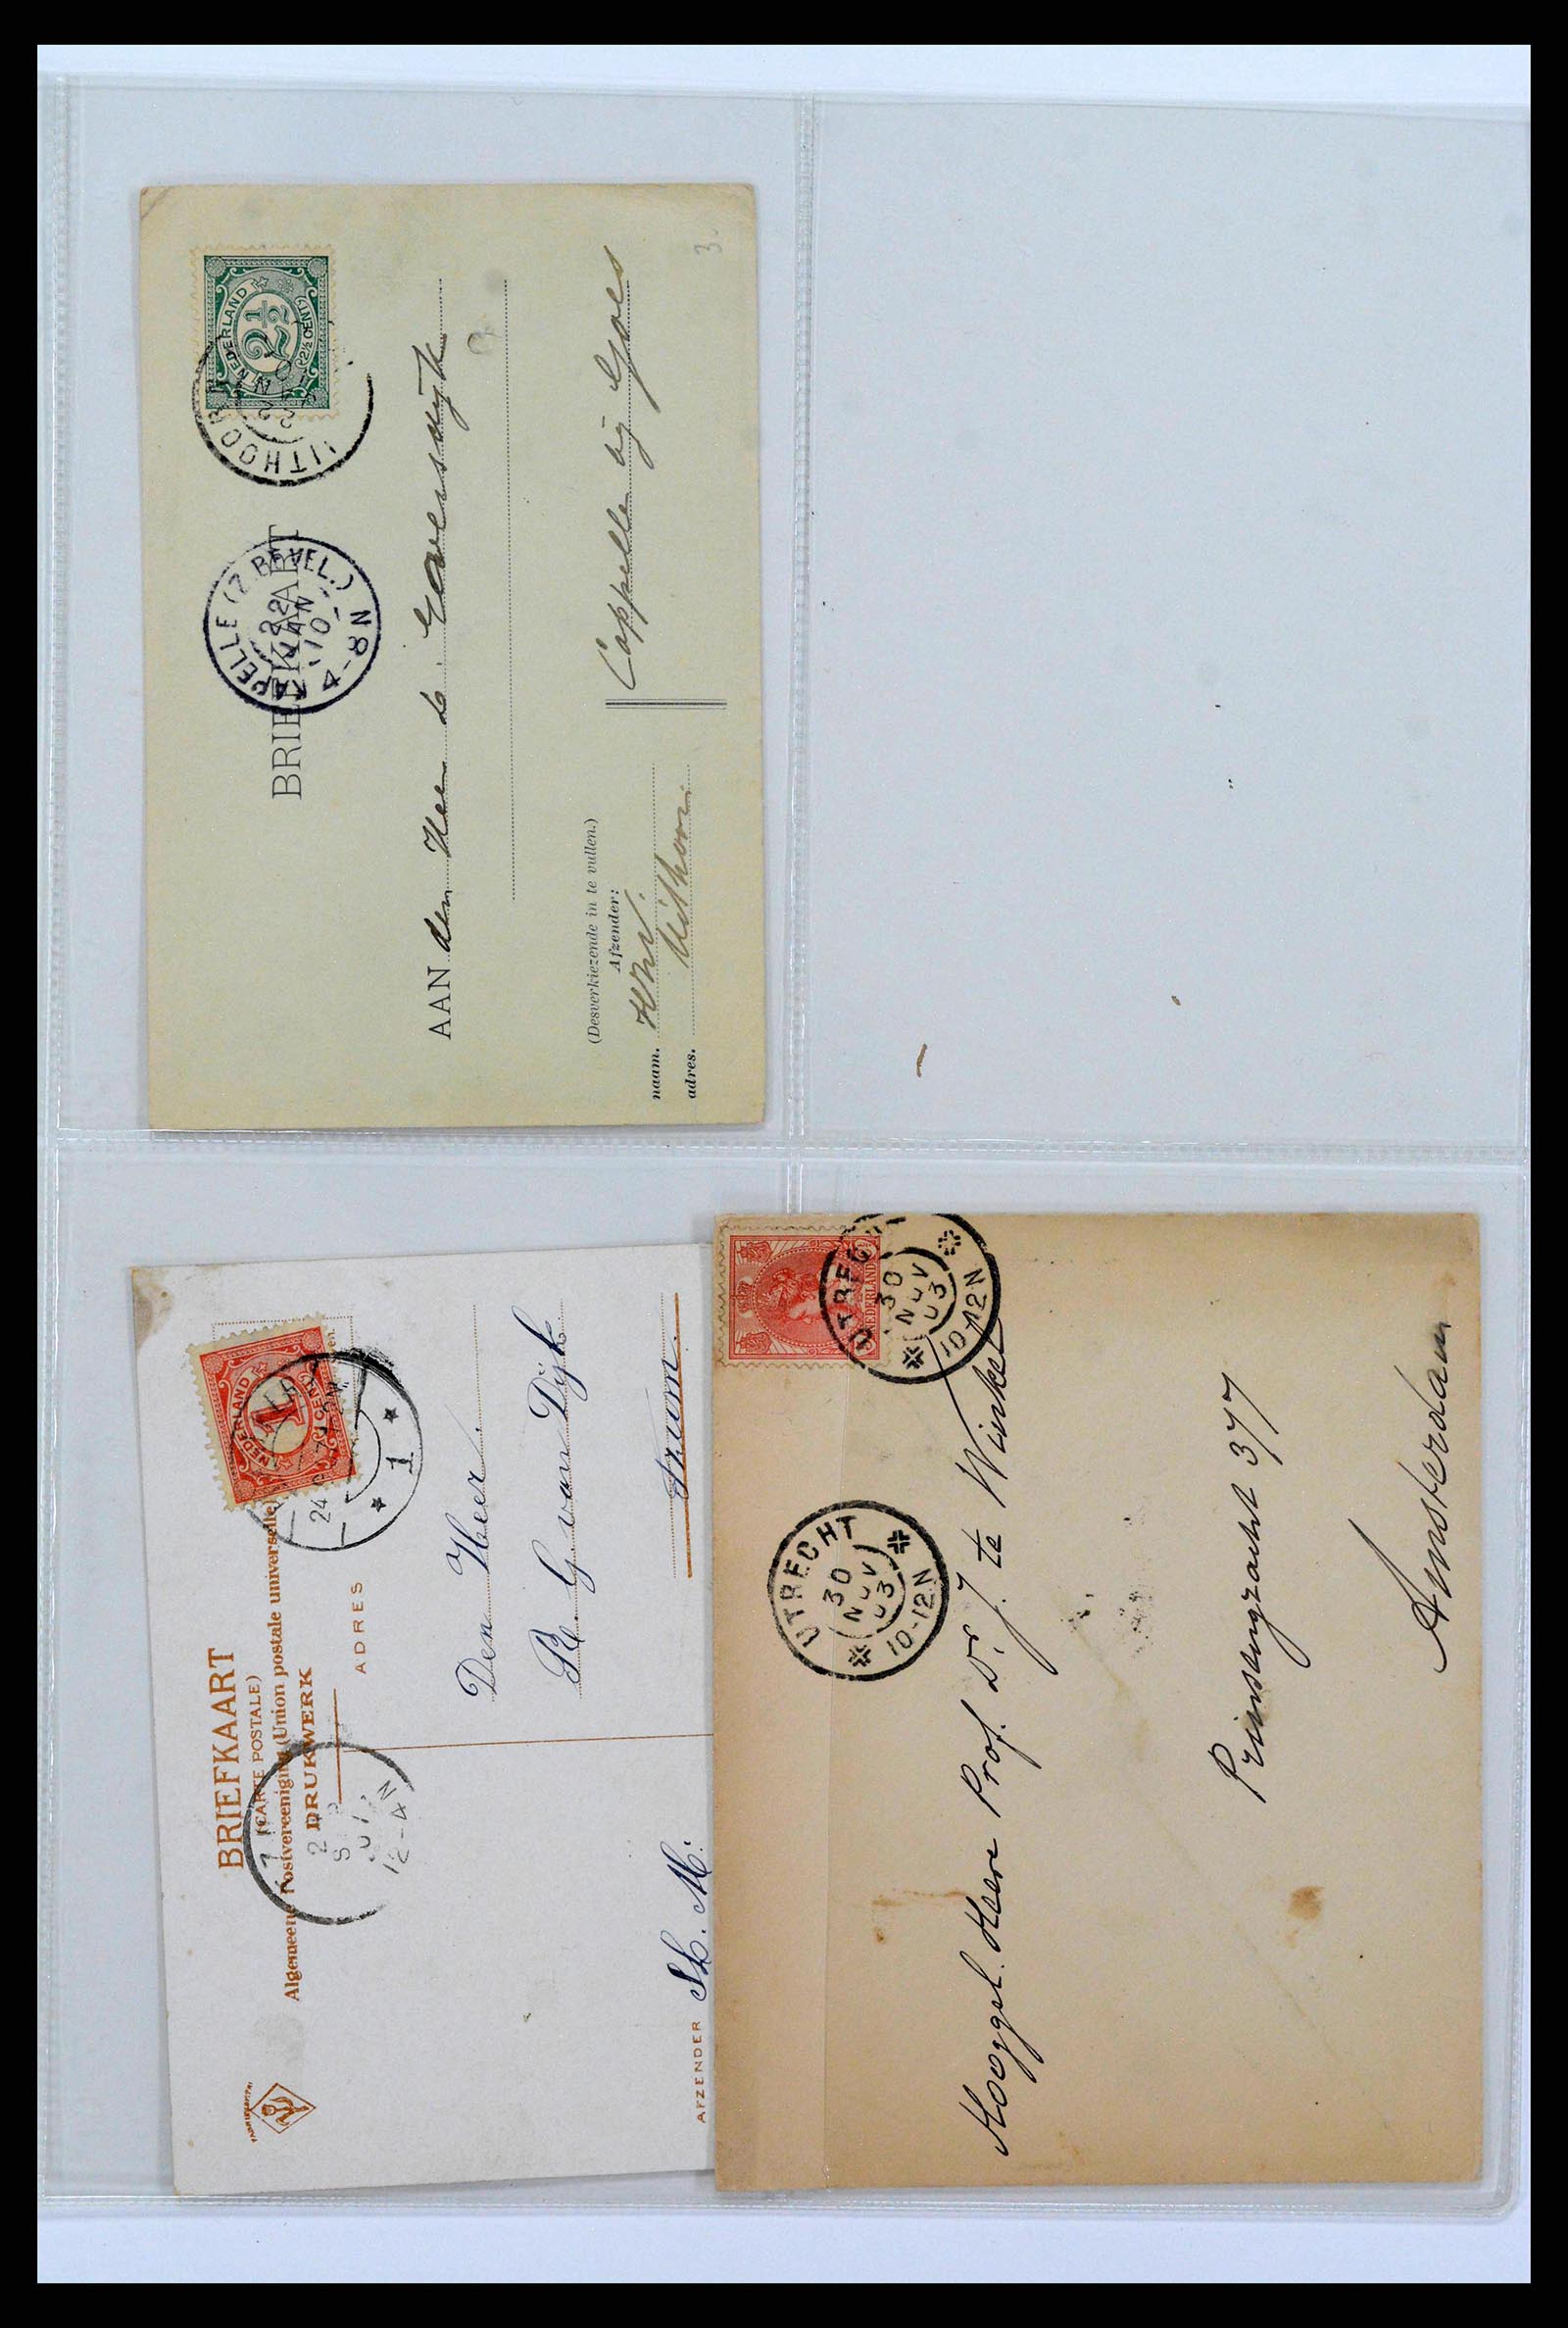 BRIEFKAART
NEDERLAND
2½
2½ CENT
UITHOORN
22
KAPELLE (Z. BEVEL.)
22
JAN
10
4-8N
AAN den Heer
Cappelle bij Goes
(Desverkiezende in te vullen.)
Afzender:
naam.
adres. Uithoorn.
3.
BRIEFKAART
(CARTE POSTALE)
Algemeene Postvereeniging (Union postale universelle)
DRUKWERK
ADRES
NEDERLAND
1
CENT
24
1
12-4N
Den Heer.
R. G. van Dijk
AFZENDER
NEDERLAND
UTRECHT
30
NOV
03
10-12N
UTRECHT
30
NOV
03
10-12N
Hooggel. Heere Prof. Dr. J. te Winkel
Prinsengracht 377
Amsterdam